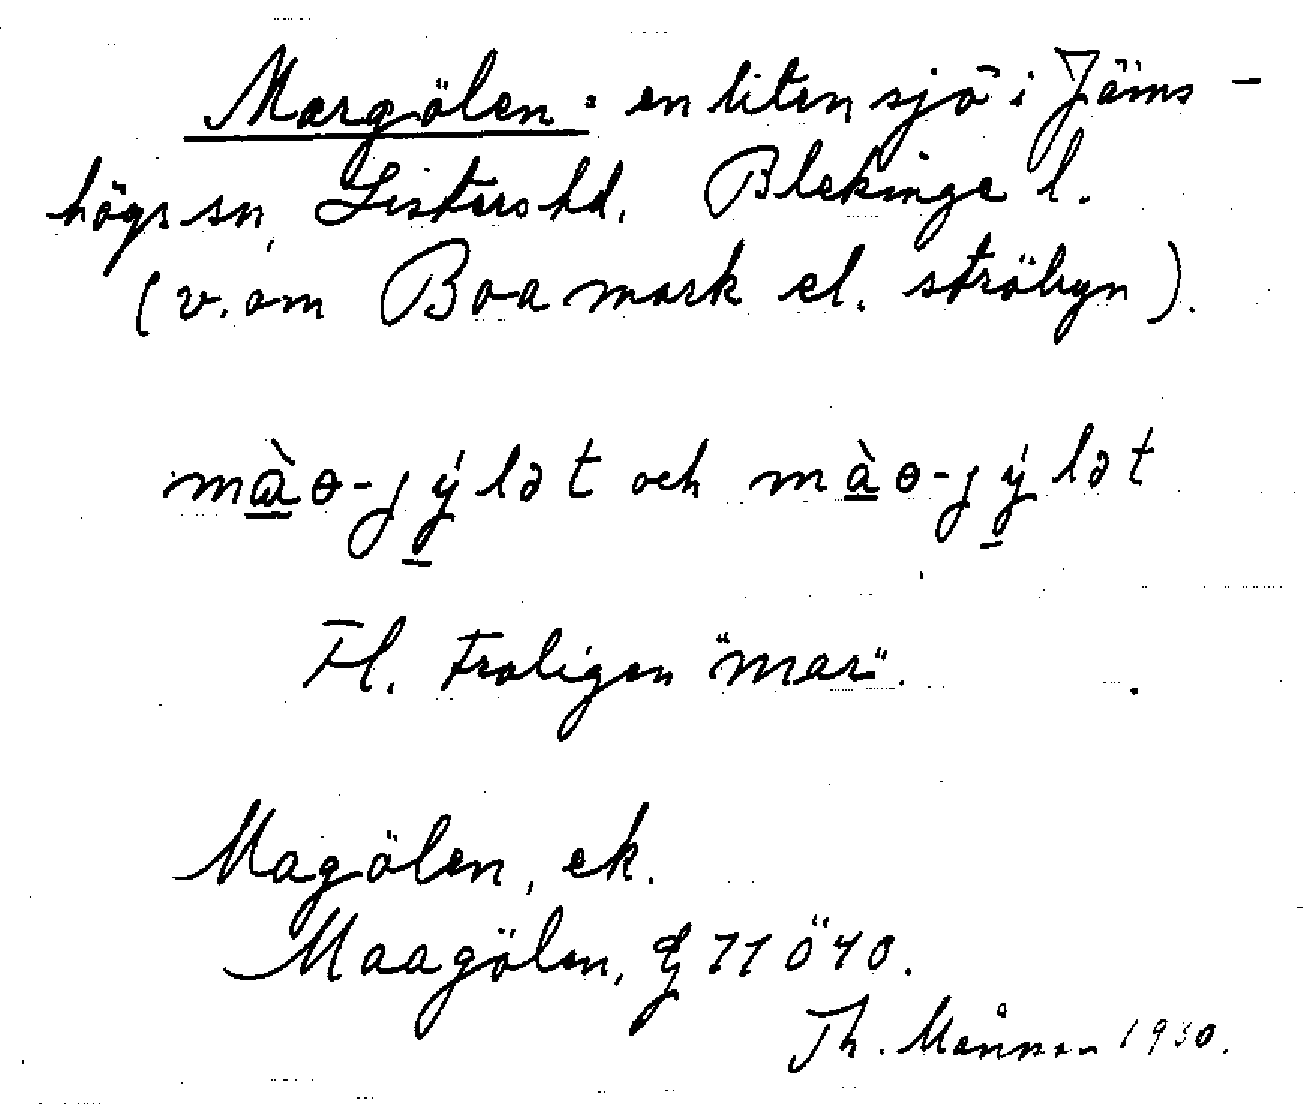 Margölen: en liten sjö i Jäms-
högs sn, Listers hd. Blekinge l.
(v. om Boa mark el. ströhyn).
màɵ-jýlət och màɵ-jýlət
Fl. Troligen "mar".
Magölen, ek.
Maagölen, 11 ö 40.
Th. 1930.